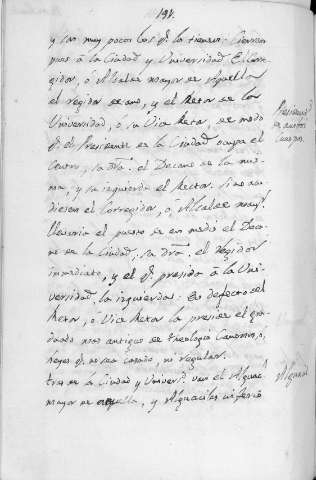 191.
y son muy pocos los q.e la tienen. Cierran
pues á la Ciudad y Universidad El Corre-
gidor, ó Alcalde mayor de Aquella
el regidor decano, y el Retor de la
Universidad, ó su Vice Retor de modo
q.e el Presidente de la Ciudad ocupa el
Centro, su dra. el Decano de la mis-
ma, y su izquierda el Rector. Si no pu-
diesen el Corregidor, ó Alcalde mayr.
llevaria el puesto de en medio el Deca-
no de la Ciudad, su dra. el regidor
inmediato, y el q.e presida á la Uni-
versidad la izquierda: En defecto del
Retor, ó Vice Retor la preside el gra-
duado mas antiguo de Theologia Canones, ó,
Leyes q.e no sea casado, ni regular.
tras de la Ciudad y Universid. van el Alguacil
mayor de aquella, y Alguaciles inferio
Presidencia
de ambos
Cuerpos.
Alguaci